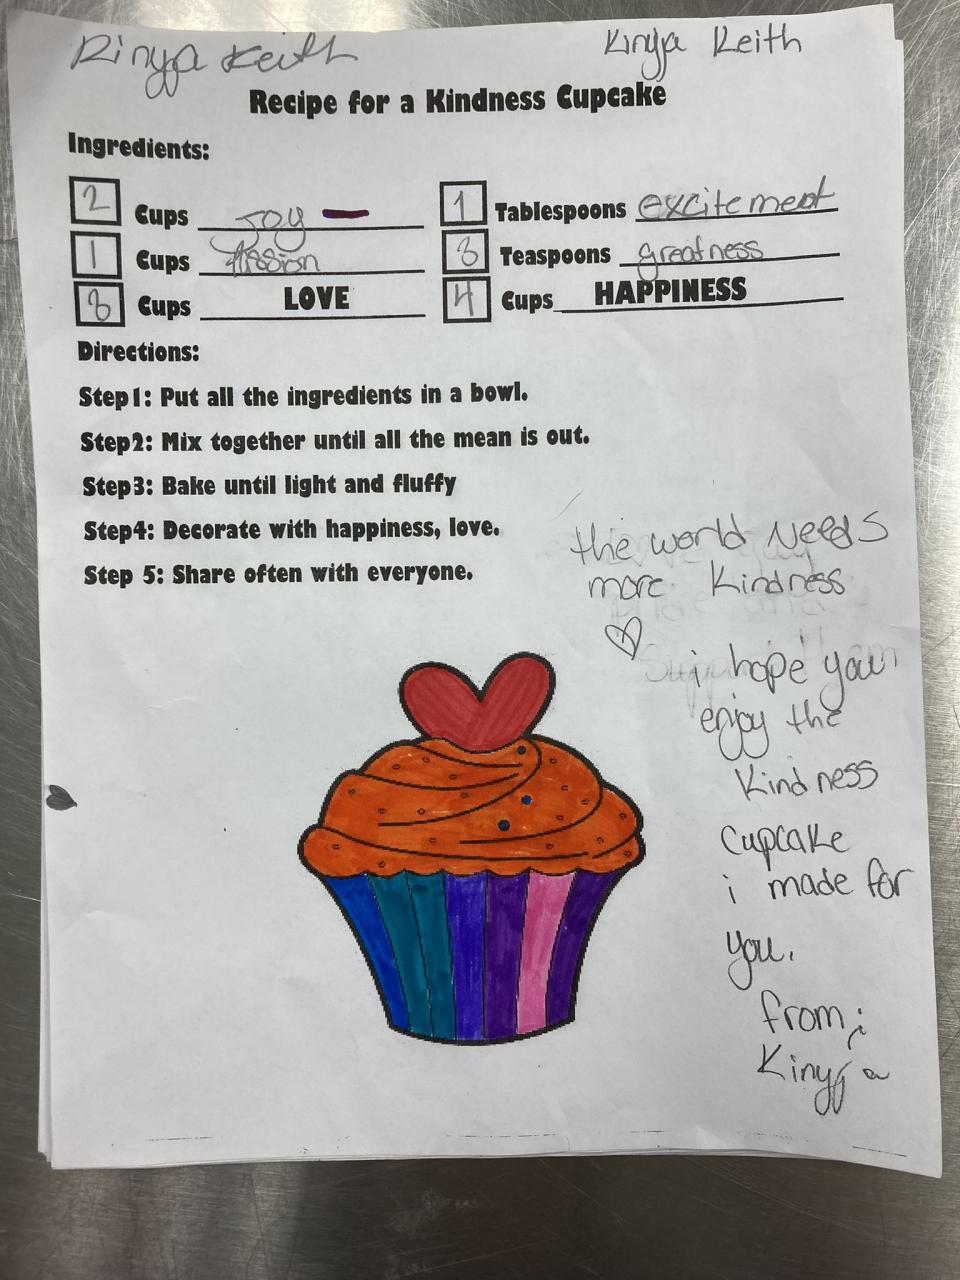 Kinyja Keith
Kinyja Keith
Recipe for a Kindness Cupcake
Ingredients:
2 Cups Joy
1 Tablespoons excitement
1 Cups
3 Teaspoons greatness
3 Cups LOVE
4 Cups HAPPINESS
Directions:
Step1: Put all the ingredients in a bowl.
Step2: Mix together until all the mean is out.
Step3: Bake until light and fluffy
Step4: Decorate with happiness, love.
Step 5: Share often with everyone.
the world Needs
more Kindness
i hope you
enjoy the
Kindness
cupcake
i made for
you.
from;
Kinyja